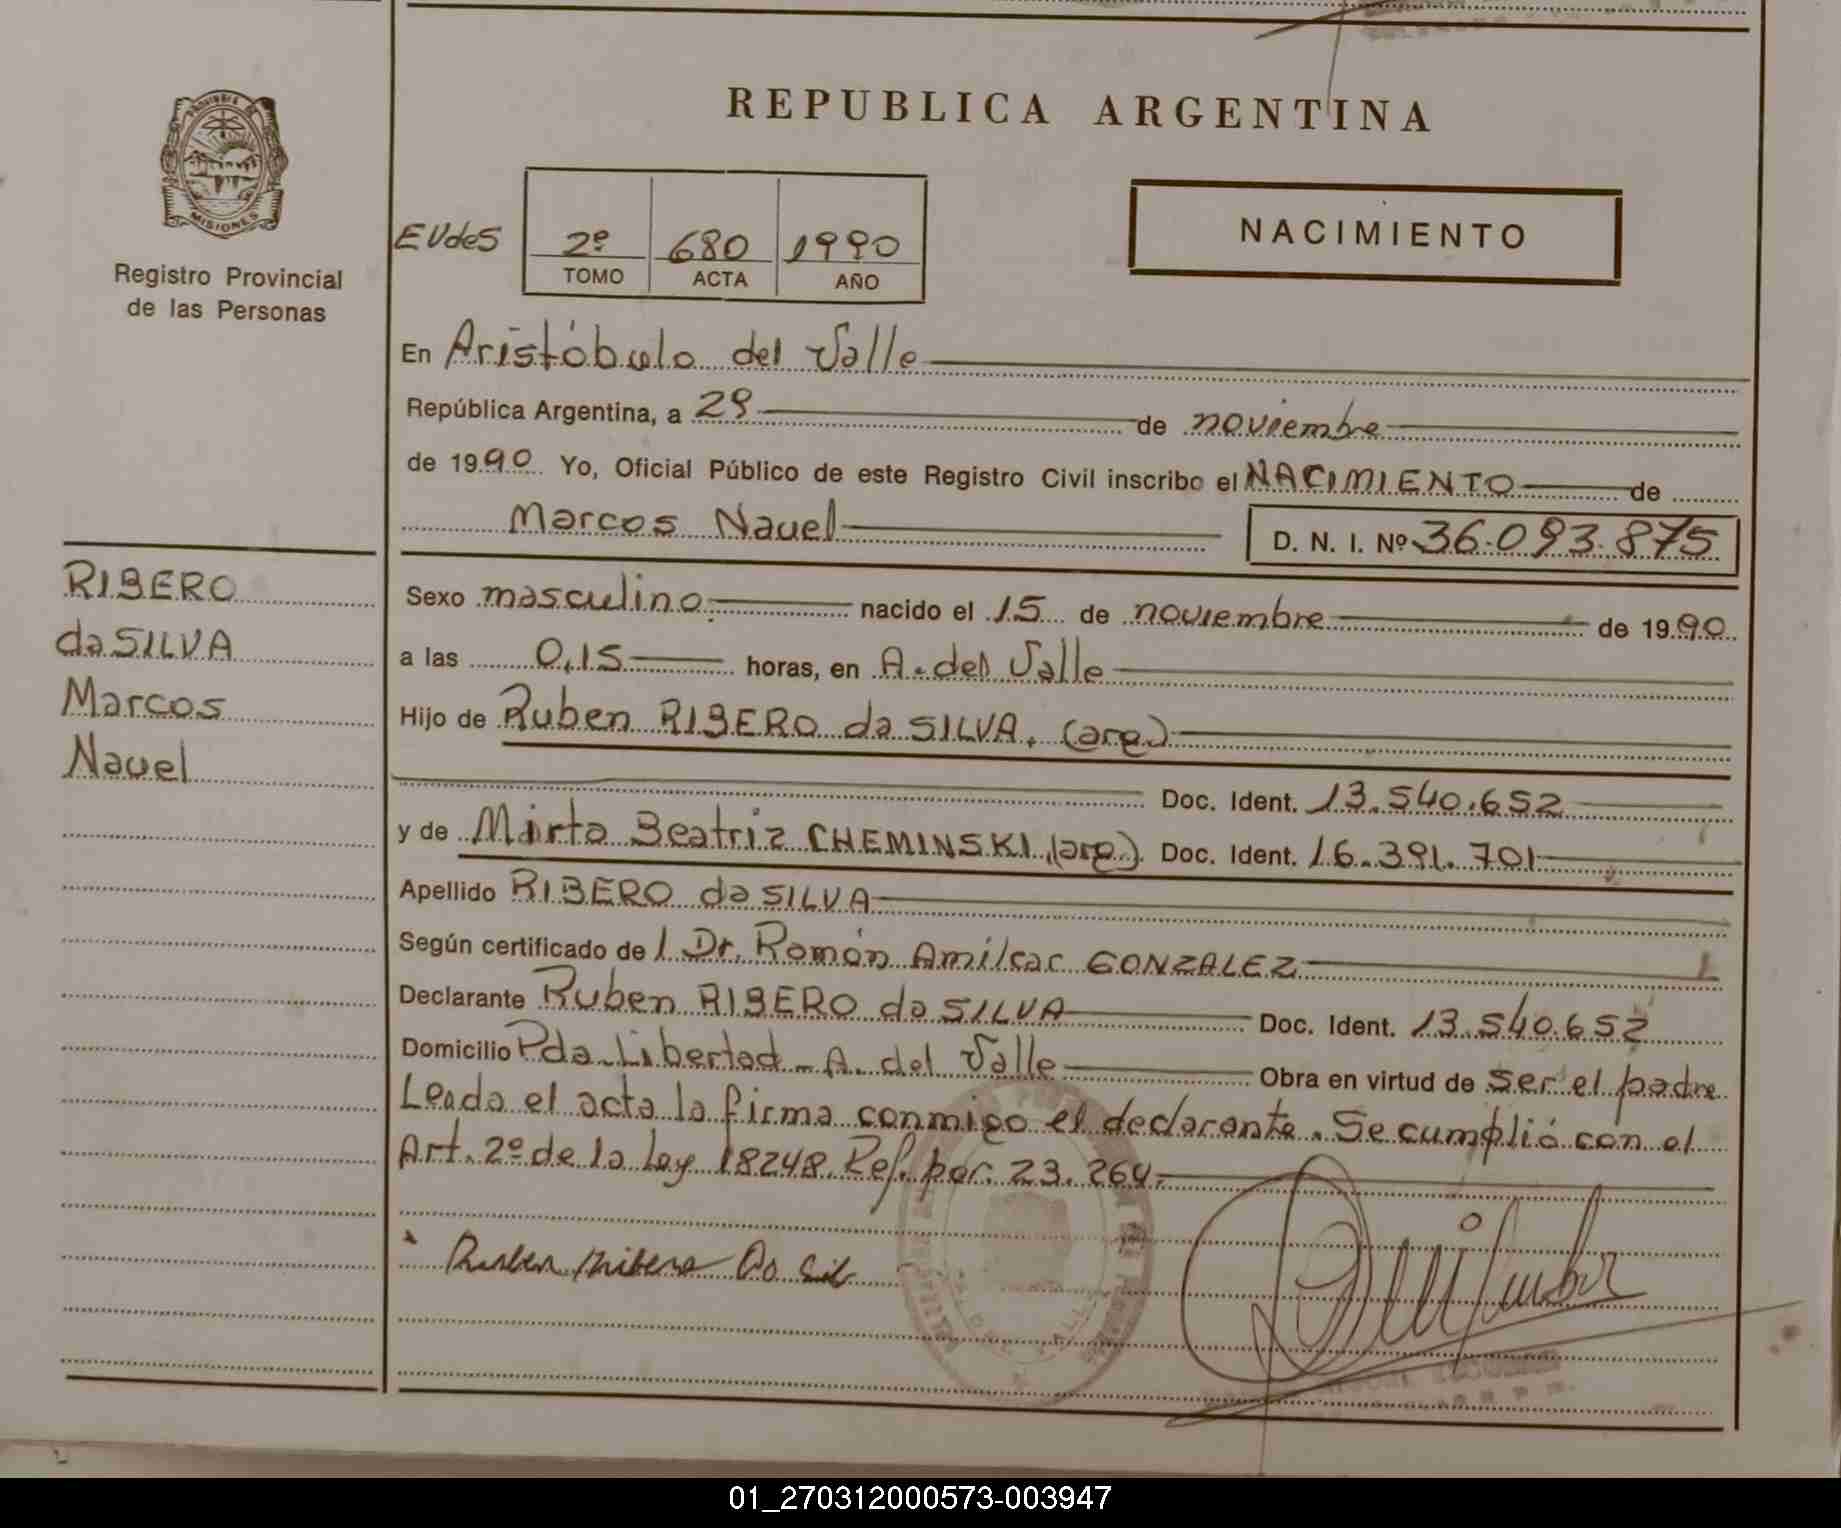 REPUBLICA ARGENTINA
PROVINCIA DE
MISIONES
Registro Provincial
de las Personas
EVdes
2º 680 1990
TOMO ACTA AÑO
NACIMIENTO
En Aristóbulo del Valle
República Argentina, a 29 de noviembre
de 1990 Yo, Oficial Público de este Registro Civil inscribo el NACIMIENTO de
Marcos Nauel D. N. I. Nº 36.093.875
RIBERO
da SILVA
Marcos
Nauel
Sexo masculino nacido el 15 de noviembre de 1990
a las 0,15 horas, en A. del Valle
Hijo de Ruben RIBERO da SILVA. (arg.)
Doc. Ident. 13.540.652
y de Mirta Beatriz CHEMINSKI, (arg.). Doc. Ident. 16.391.701
Apellido RIBERO da SILVA
Según certificado de l Dr. Ramón Amilcar GONZALEZ
Declarante Ruben RIBERO da SILVA Doc. Ident. 13.540.652
Domicilio Pda. Libertad - A. del Valle Obra en virtud de ser el padre
Leada el acta la firma conmigo el declarante. Se cumplió con el
Art. 2º de la ley 18248 Ref. por. 23.264.
Ruben Ribero Da Sil
01_270312000573-003947